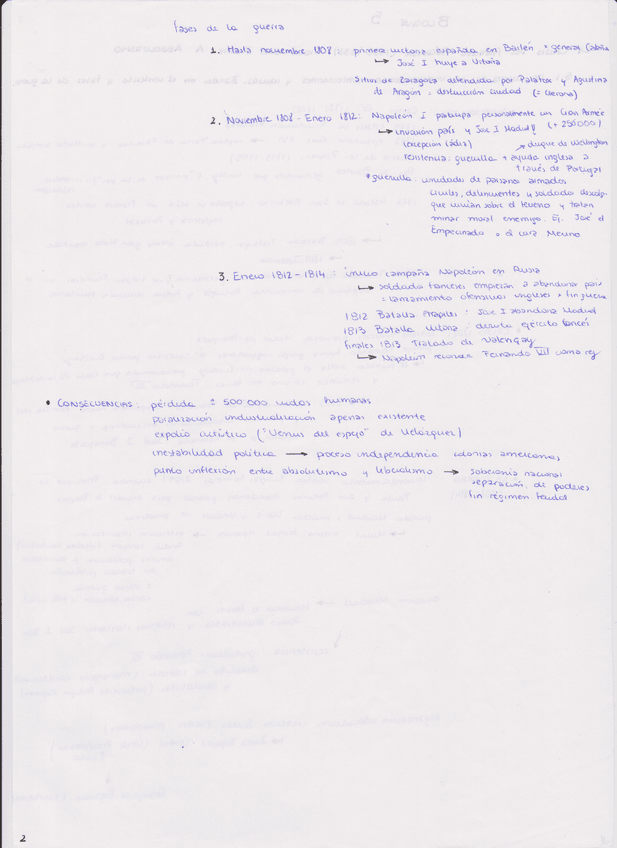 fases de la guerra
1. Hasta noviembre 1808: primera victoria española en Bailén * general Castaños
→ José I huye a Vitoria
Sitios de Zaragoza defendida por Palafox y Agustina
de Aragón: destrucción ciudad (= Gerona)
2. Noviembre 1808 - Enero 1812: Napoleón I participa personalmente un Gran Armée
(+ 250000)
→ invasión país y José I Madrid
excepción (Cádiz)
→ duque de Wellington
resistencia: guerrilla + ayuda inglesa a
través de Portugal
* guerrilla: unidades de paisanos armados
civiles, delincuentes y soldados
que vivían sobre el terreno y tratan
minar moral enemigo. Ej. José el
Empecinado o el cura Merino
3. Enero 1812 - 1814: inicio campaña Napoleón en Rusia
→ soldados franceses empiezan a abandonar país
= lanzamiento ofensivas inglesas + fin guerra
1812 Batalla Arapiles: José I abandona Madrid
1813 Batalla Vitoria: derrota ejército francés
finales 1813 Tratado de Valençay
→ Napoleón reconoce Fernando VII como rey
• CONSECUENCIAS: pérdida ± 500.000 vidas humanas
paralización industrialización apenas existente
expolio artístico ("Venus del espejo" de Velázquez)
inestabilidad política → proceso independencia colonias americanas
punto inflexión entre absolutismo y liberalismo → soberanía nacional
separación de poderes
fin régimen feudal
2